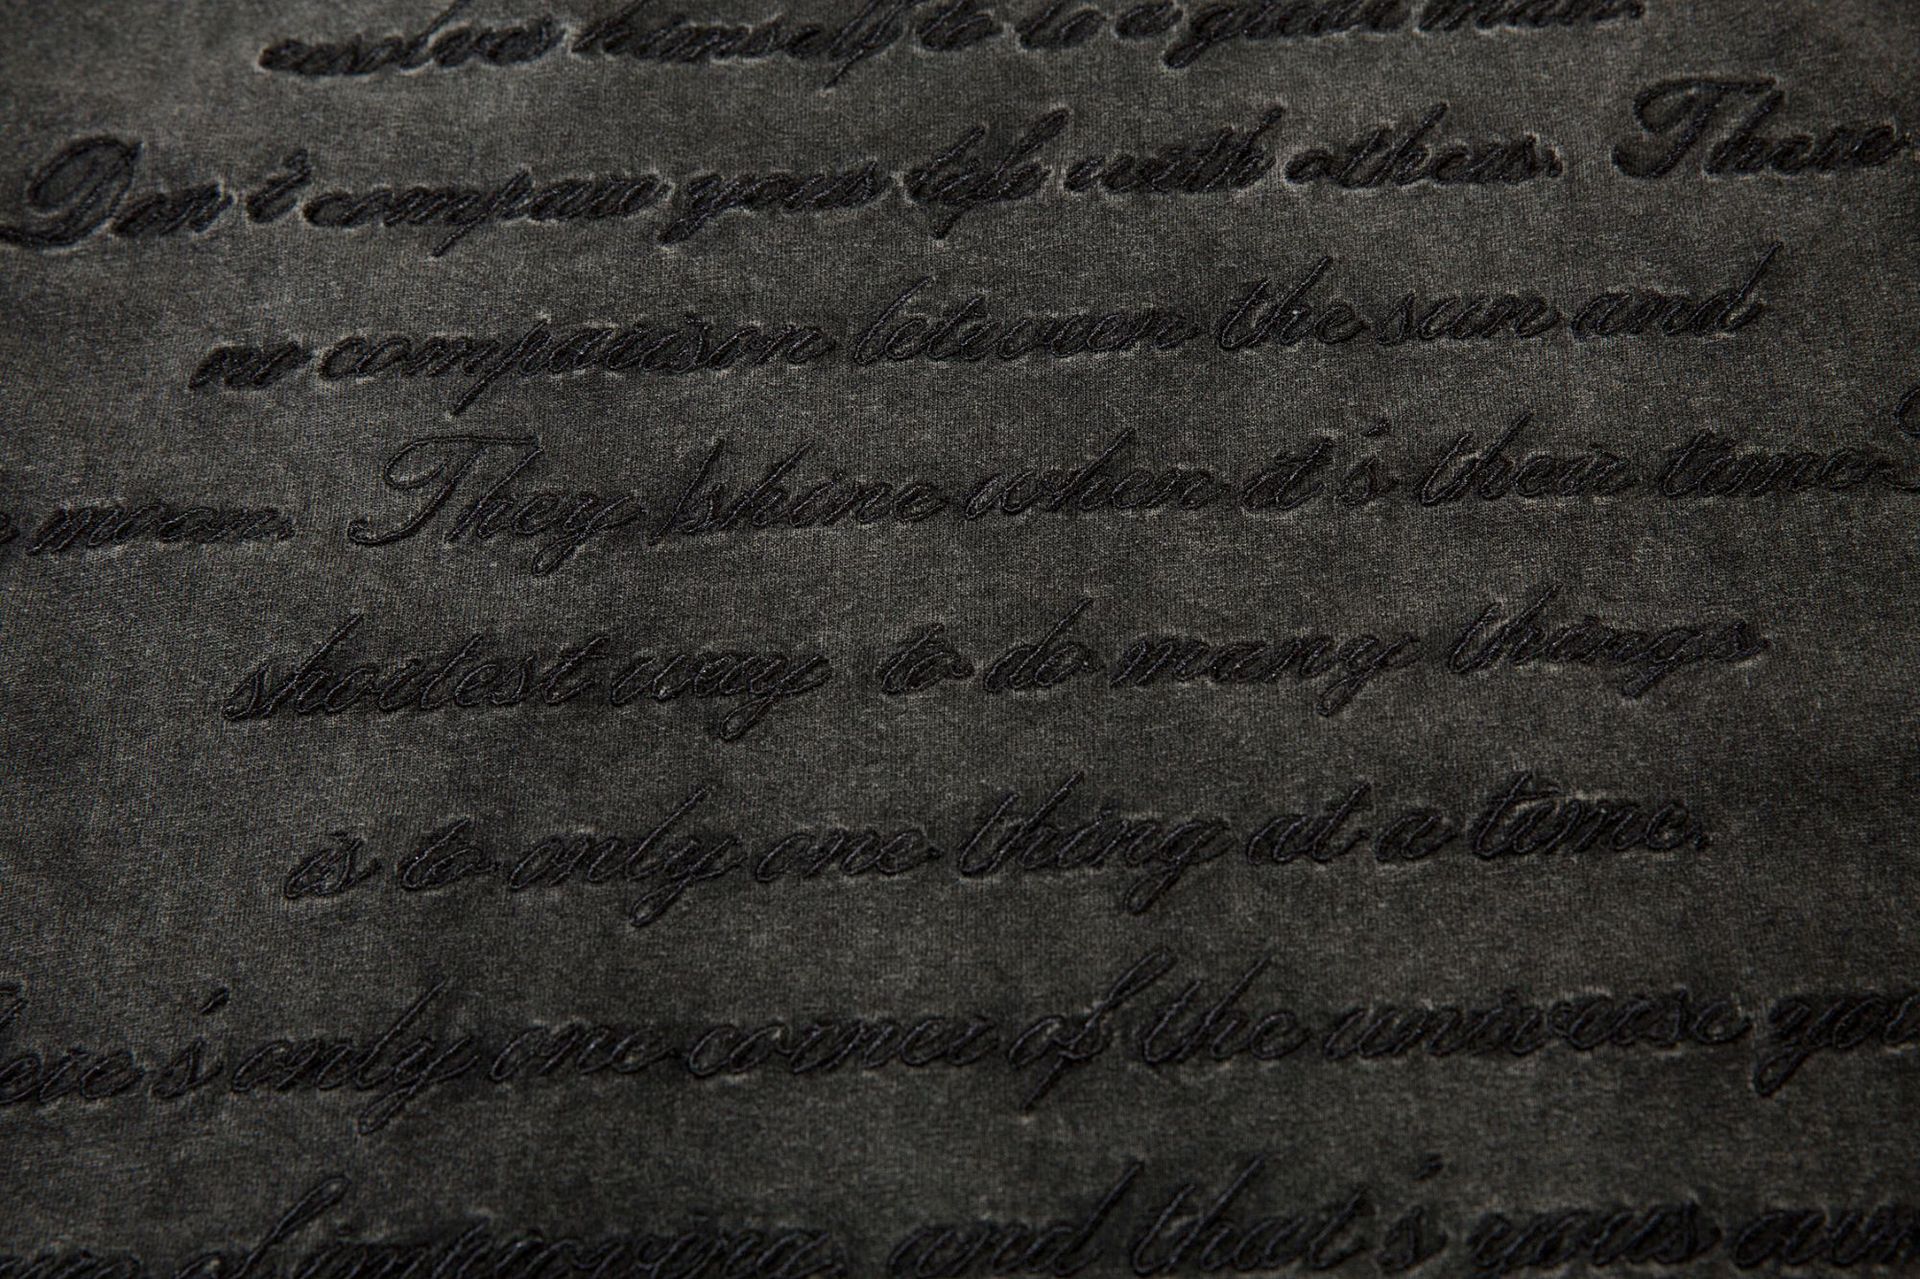 himself to to a great man.
Don't compare your life with others. There
no comparison between the sun and
moon. They shine when it's their time.
shortest way to do many things
is to only one thing at a time.
There's only one corner of the universe you
of improving, and that's your own